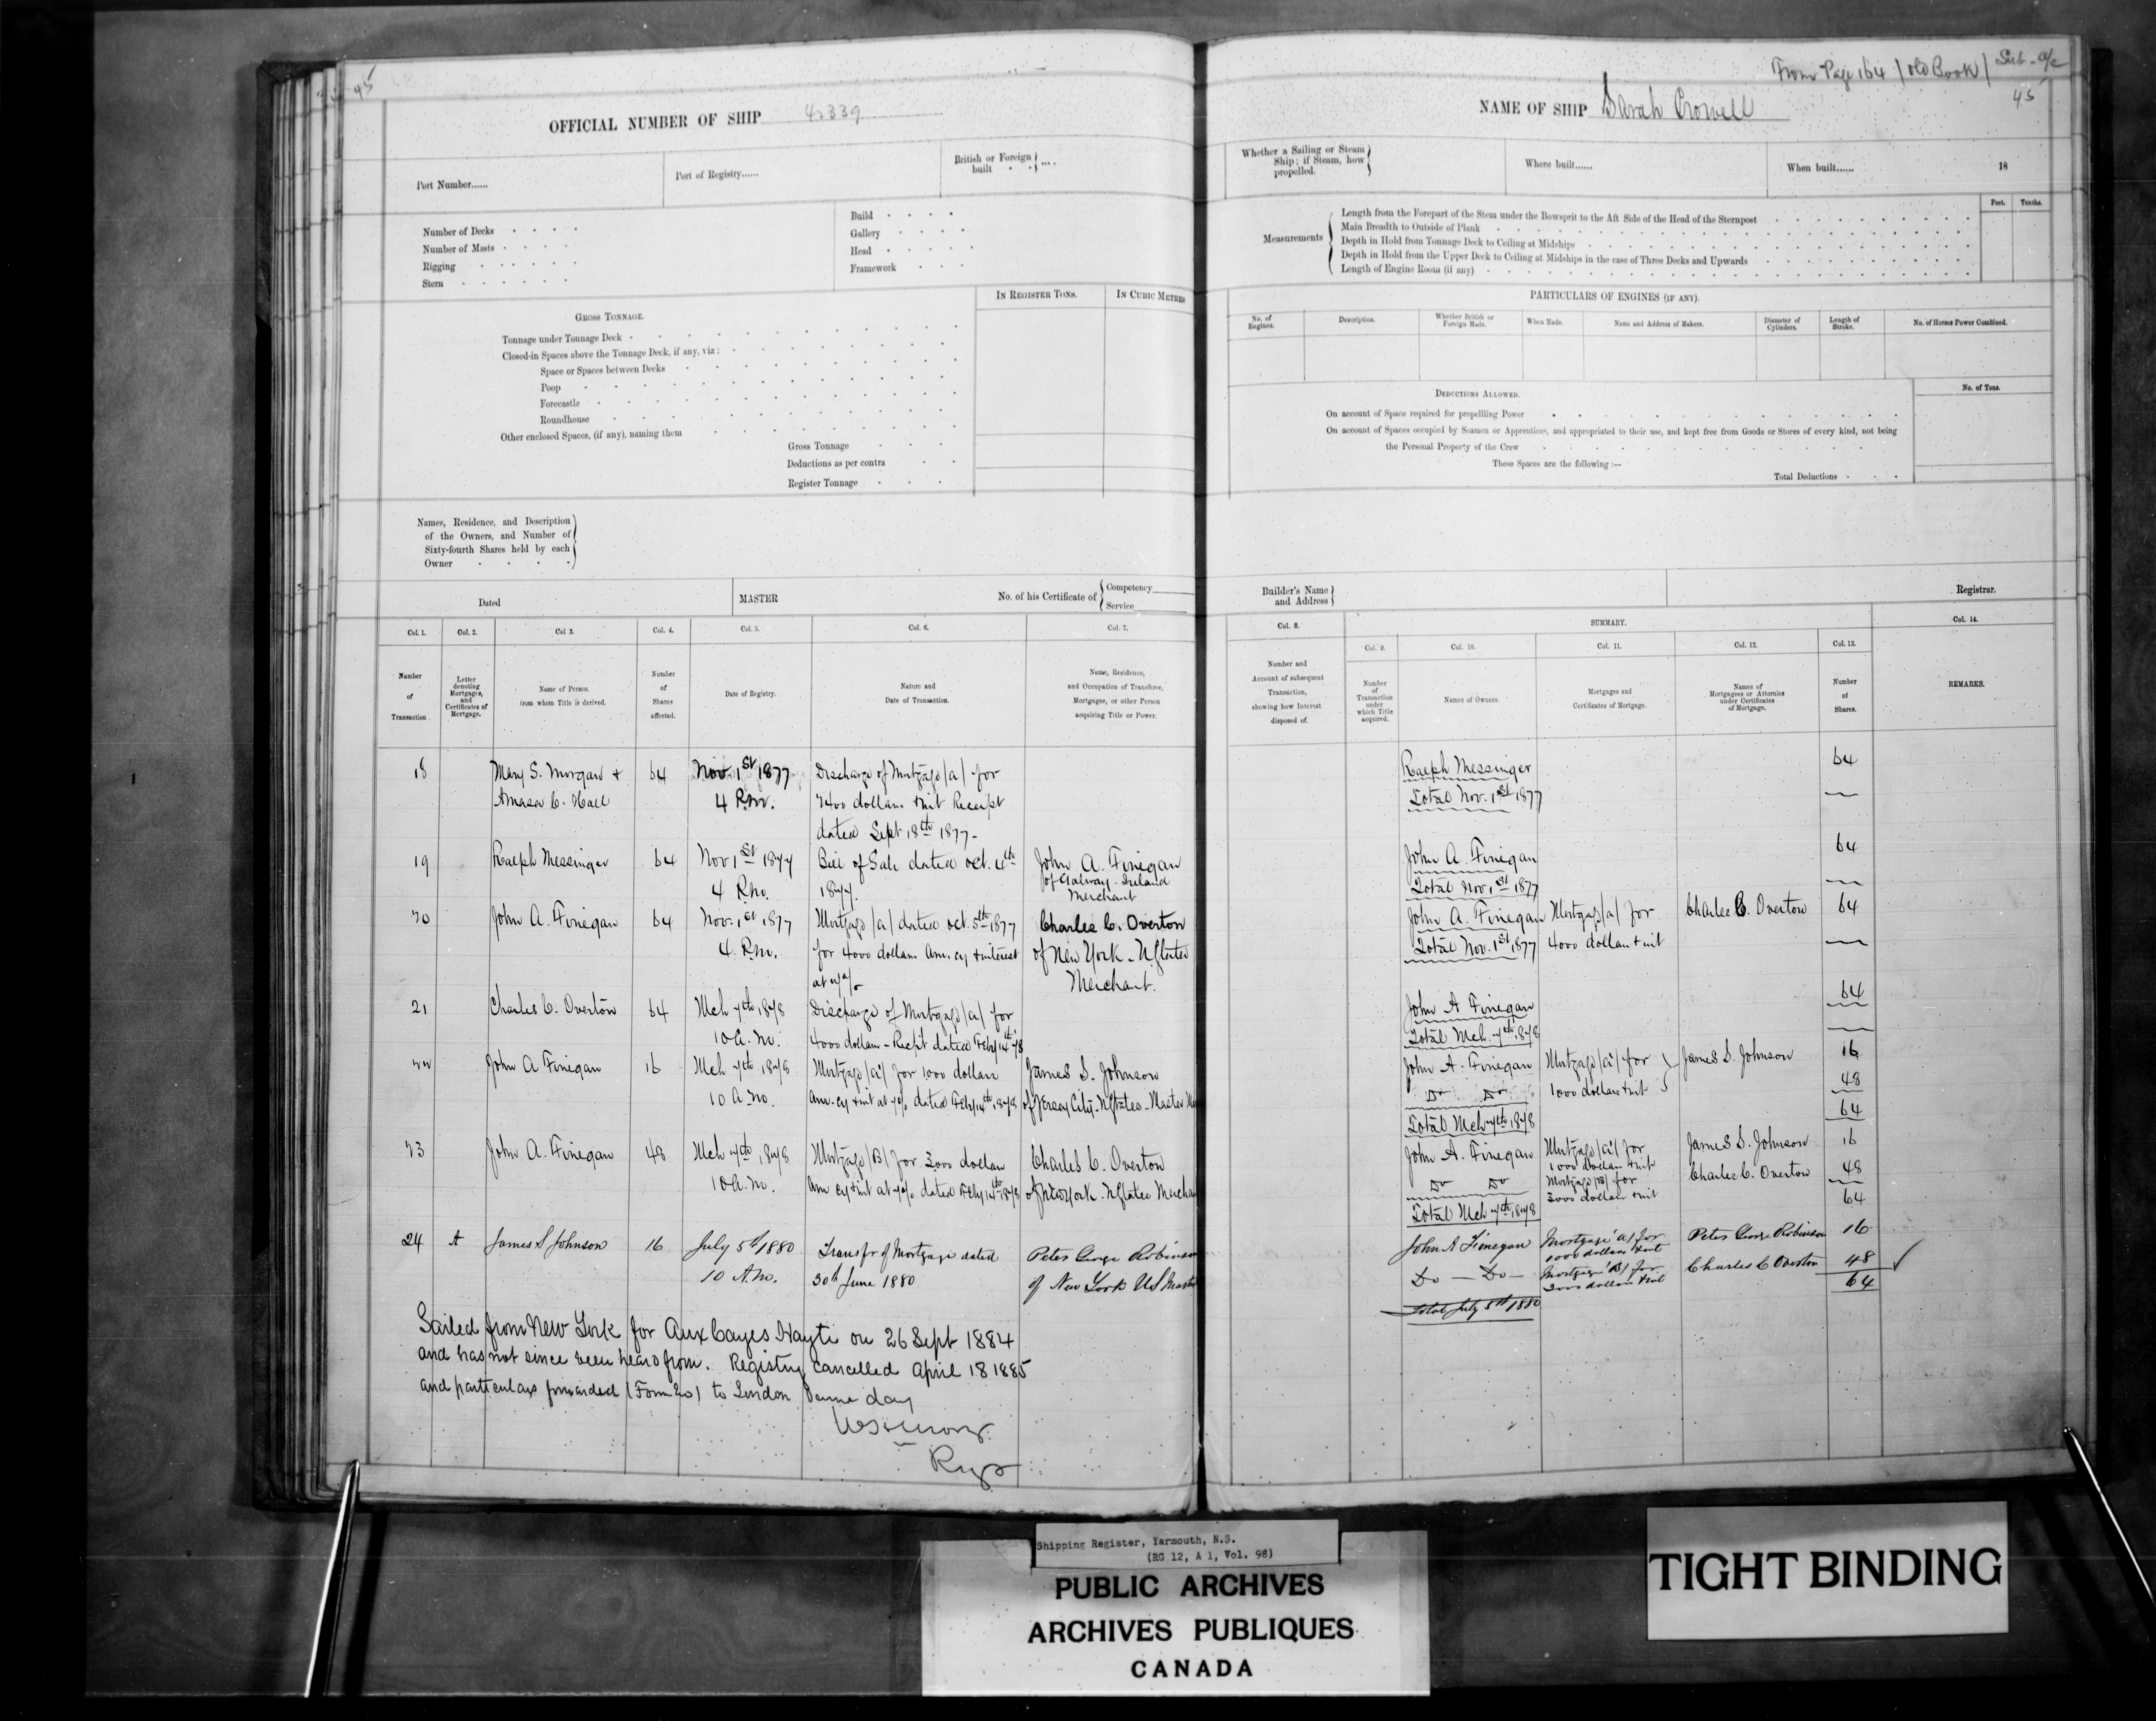 45
OFFICIAL NUMBER OF SHIP 42339
Port Number......
Port of Registry......
British or Foreign built . . ....
Number of Decks . . . .
Number of Masts . . . .
Rigging . . . . .
Stern . . . . . .
Build . . . .
Gallery . . . .
Head . . . . .
Framework . . .
IN REGISTER TONS.
IN CUBIC METRES
GROSS TONNAGE.
Tonnage under Tonnage Deck
Closed-in Spaces above the Tonnage Deck, if any, viz:
Space or Spaces between Decks
Poop
Forecastle
Roundhouse
Other enclosed Spaces, (if any), naming them
Gross Tonnage
Deductions as per contra
Register Tonnage
Names, Residence, and Description
of the Owners, and Number of
Sixty-fourth Shares held by each
Owner
Dated
MASTER
No. of his Certificate of { Competency
Service
Col. 1.
Col. 2.
Col 3.
Col. 4.
Col. 5.
Col. 6.
Col. 7.
Number of Transaction.
Letter denoting Mortgages, and Certificates of Mortgage.
Name of Person. from whom Title is derived.
Number of Shares affected.
Date of Registry.
Nature and Date of Transaction.
Name, Residence, and Occupation of Transferee, Mortgagee, or other Person acquiring Title or Power.
18 Mary S. Morgan + 64 Nov. 1st 1877 Discharge of Mortgage (a) for
Amasa C. Hall 4 P.m. 7400 dollars + int Receipt
dated Sept 18th 1877-
19 Ralph Messinger 64 Nov 1st 1877 Bill of Sale dated oct. 4th John A. Finegan
4 P.m. 1877. of Galway - Ireland
Merchant
20 John A. Finegan 64 Nov. 1st 1877 Mortgage (a) dated oct. 5th 1877 Charles C. Overton
4 P.m. for 4000 dollars Am. cy + interest of New York - U States
at 7% Merchant.
21 Charles C. Overton 64 Mch 7th 1878 Discharge of Mortgage (a) for
10 A.m. 4000 dollars - Rec'pt dated Feby 14th 78
22 John A Finegan 16 Mch 7th 1878 Mortgage (a) for 1000 dollars James S. Johnson
10 A.m. Am. cy + int at 7% dated Feby 14th 1878 of Jersey City - U States - Master
23 John A. Finegan 48 Mch 7th 1878 Mortgage (B) for 3000 dollars Charles C. Overton
10 A.m. Am cy + int at 7% dated Feby 14th 1878 of New York - U States Merchan
24 A James S Johnson 16 July 5th 1880 Transfr of Mortgage dated Peter George Robinson
10 A.m. 30th June 1880 of New York US
Sailed from New York for Aux Cayes Hayti on 26 Sept 1884
and has not since been heard from. Registry cancelled April 18 1885
and particulars forwarded (Form 20) to London same day
Regr
From Page 164 (old Book) Sub - a/c
NAME OF SHIP Sarah Crowell
45
Whether a Sailing or Steam Ship; if Steam, how propelled.
Where built......
When built...... 18
Feet. Tenths.
Measurements
Length from the Forepart of the Stem under the Bowsprit to the Aft Side of the Head of the Sternpost
Main Breadth to Outside of Plank
Depth in Hold from Tonnage Deck to Ceiling at Midships
Depth in Hold from the Upper Deck to Ceiling at Midships in the case of Three Decks and Upwards
Length of Engine Room (if any)
PARTICULARS OF ENGINES (IF ANY).
No. of Engines.
Description.
Whether British or Foreign Made.
When Made.
Name and Address of Makers.
Diameter of Cylinders.
Length of Stroke.
No. of Horses Power Combined.
No. of Tons.
DEDUCTIONS ALLOWED.
On account of Space required for propellling Power
On account of Spaces occupied by Seamen or Apprentices, and appropriated to their use, and kept free from Goods or Stores of every kind, not being
the Personal Property of the Crew
These Spaces are the following :—
Total Deductions
Builder's Name and Address
Registrar.
Col. 8.
SUMMARY.
Col. 14.
Col. 9.
Col. 10.
Col. 11.
Col. 12.
Col. 13.
Number and Account of subsequent Transaction, showing how Interest disposed of.
Number of Transaction under which Title acquired.
Names of Owners.
Mortgages and Certificates of Mortgage.
Names of Mortgagees or Attornies under Certificates of Mortgage.
Number of Shares.
REMARKS.
Ralph Messinger 64
Total Nov. 1st 1877
John A. Finegan 64
Total Nov 1st 1877
John A. Finegan Mortgage (a) for Charles C. Overton 64
Total Nov. 1st 1877 4000 dollars + int
John A Finegan 64
Total Mch. 7th 1878
John A. Finegan Mortgage (a) for James S. Johnson 16
Do Do 1000 dollars + int 48
Total Mch 7th 1878 64
John A. Finegan Mortgage (a) for James S. Johnson 16
1000 dollars + int
Do Do Mortgage (B) for Charles C. Overton 48
3000 dollars + int 64
Total Mch 7th 1878
John A Finegan Mortgage A) for Peter George Robinson 16
1000 dollars + int
Do — Do — Mortgage B) for Charles C Overton 48
3000 dollars + int 64
Total July 5th 1880
Shipping Register, Yarmouth, N.S.
(RG 12, A 1, Vol. 98)
PUBLIC ARCHIVES
ARCHIVES PUBLIQUES
CANADA
TIGHT BINDING